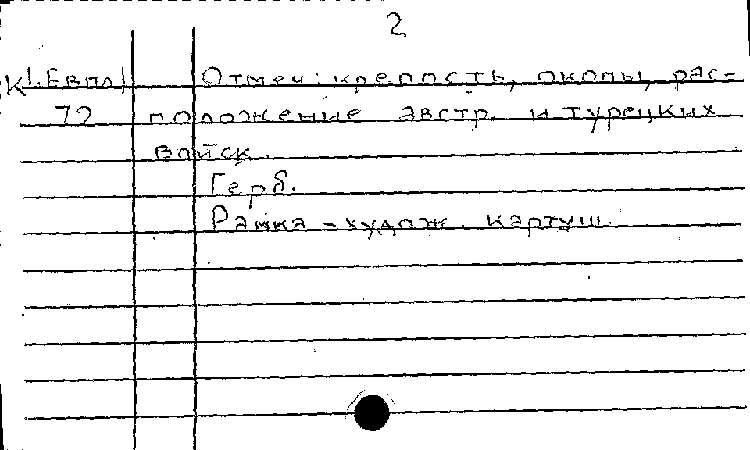 2
К1.Евпл1 Отмеч: крепость, окопы, рас-
72 положение австр. и турецких
войск.
Герб.
Рамка - худож. картуш.